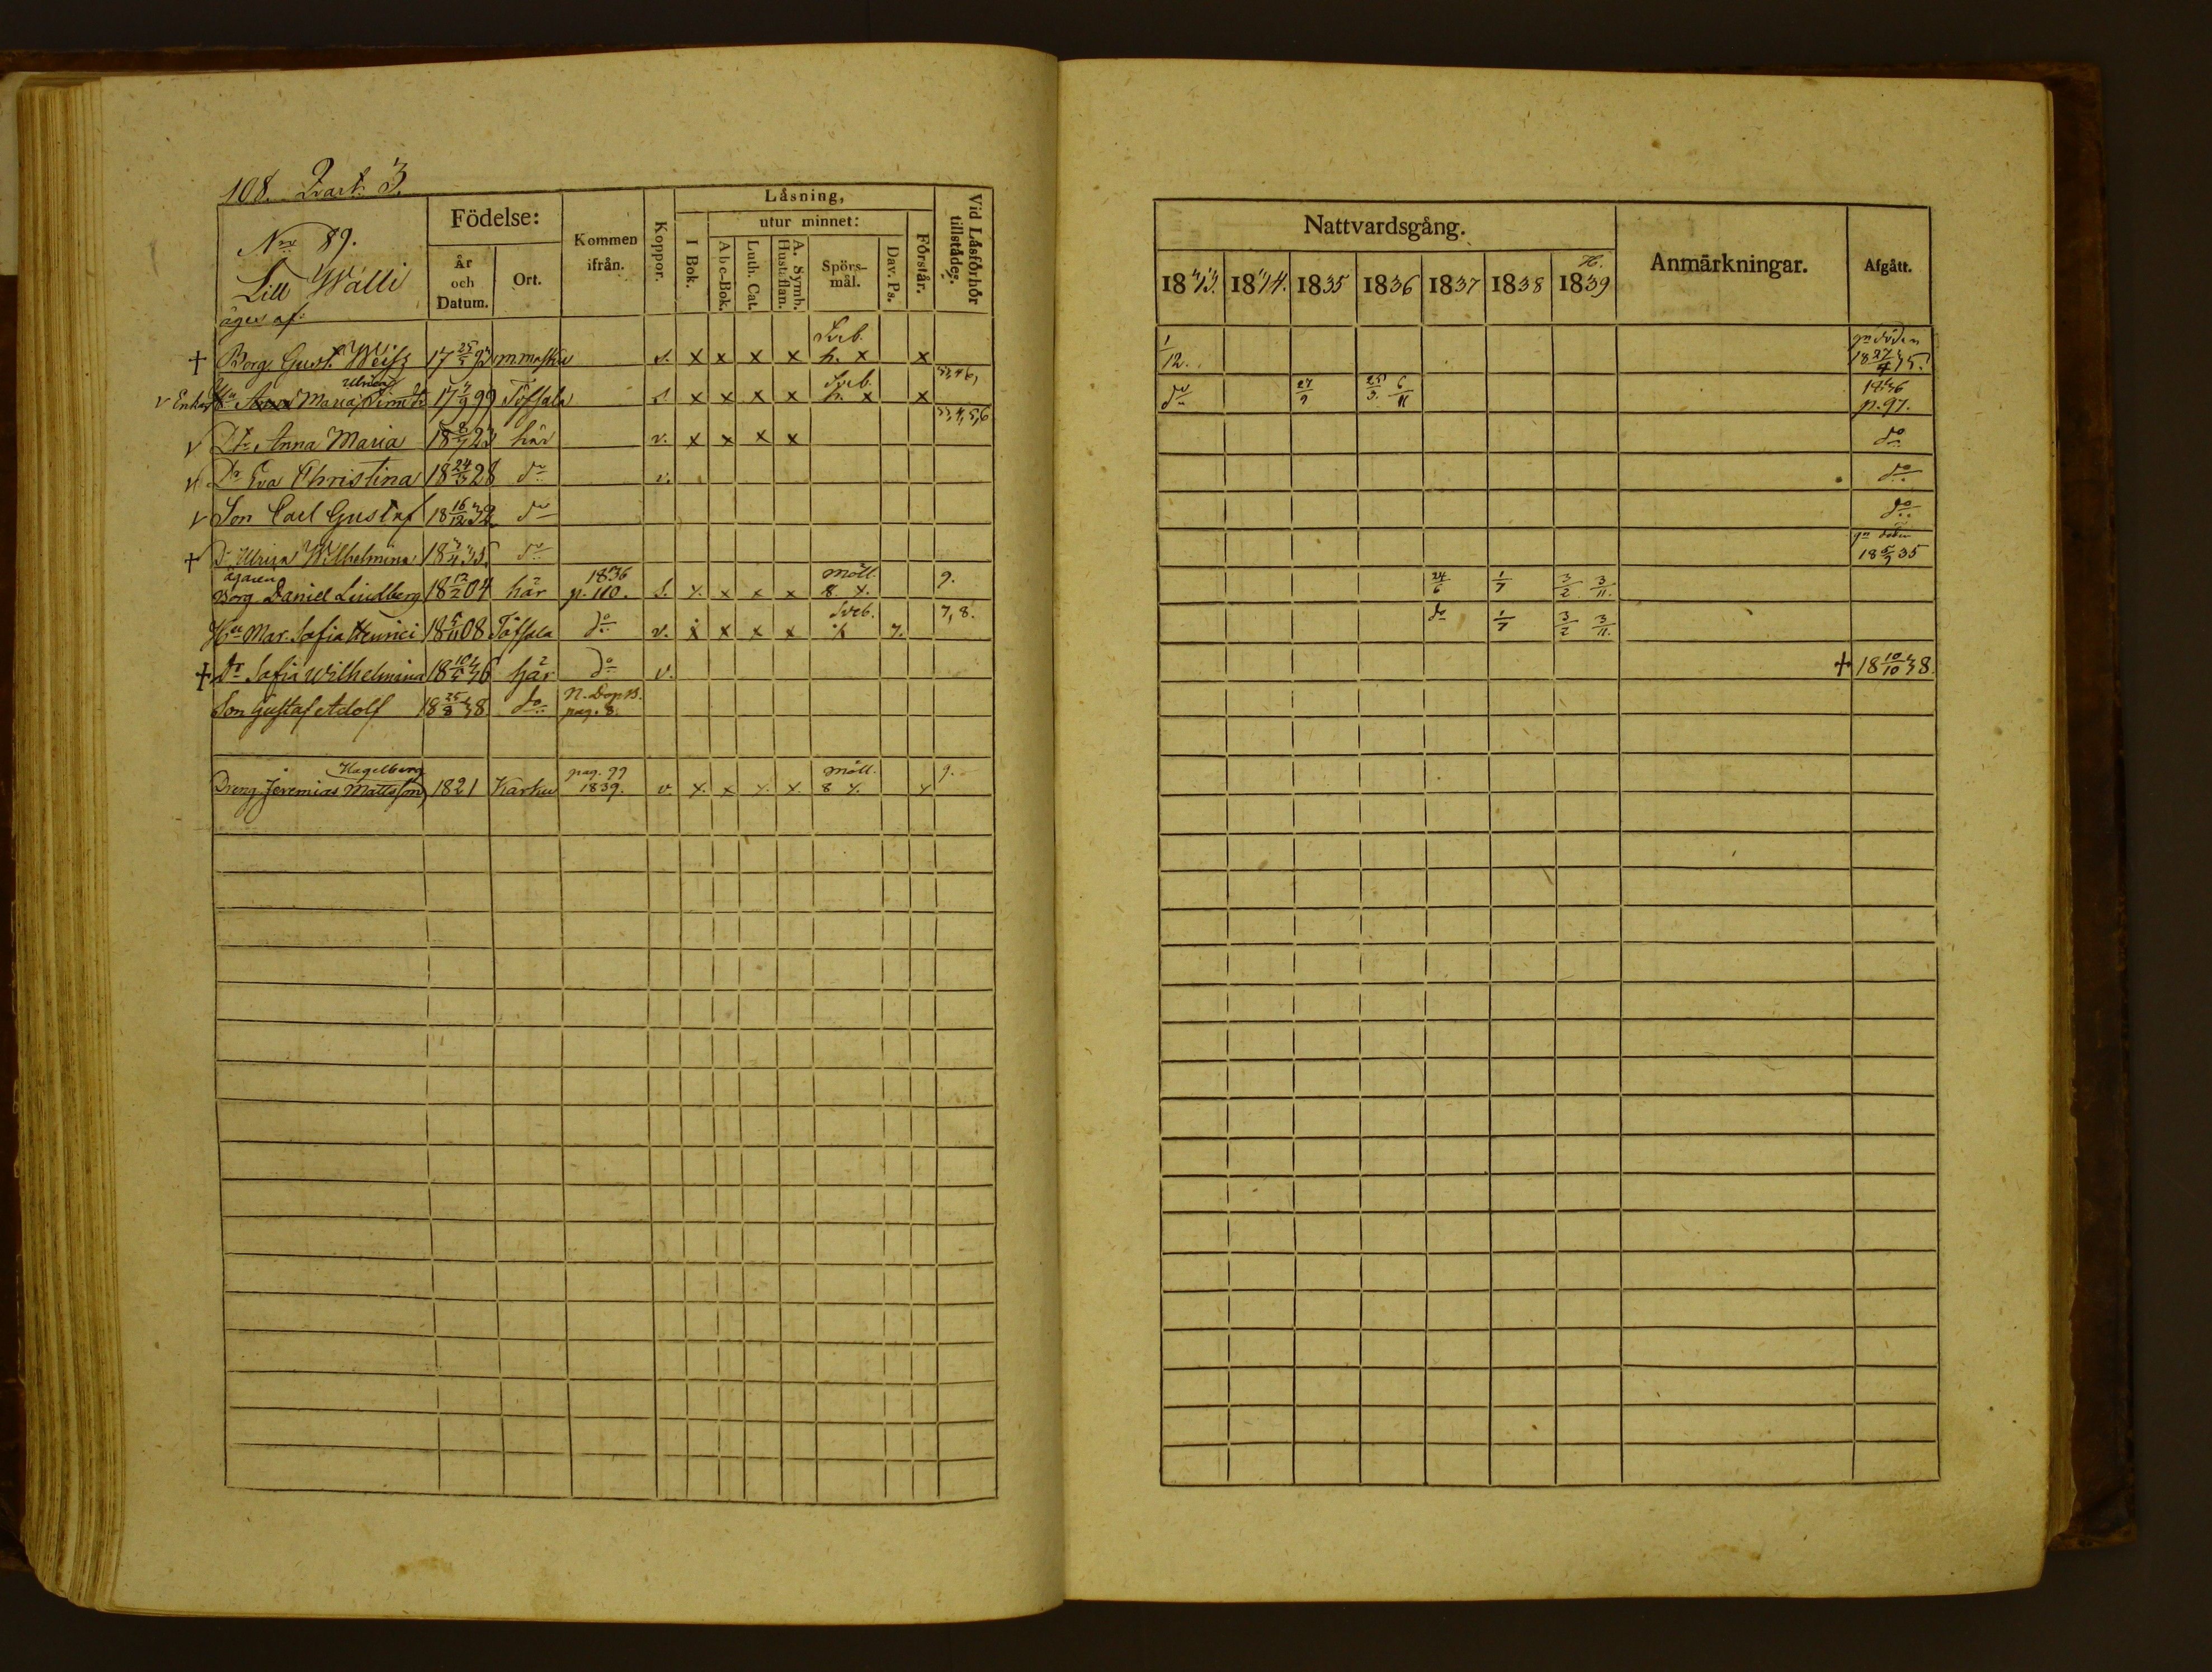 108. Qvart. 3.
No 89.
Lill Wälli
äges af
Födelse:
År och Datum.
Ort.
Kommen ifrån.
Koppor.
Låsning,
utur minnet:
I Bok.
Abc-Bok.
Luth. Cat.
A. Symb. Hustaflan.
Spörs-mål.
Dav. Ps.
Förstår.
Vid Låsförhör tillstådes.
Nattvardsgång.
1833. 1834. 1835 1836 1837 1838 1839
Anmärkningar.
Afgått.
+ Borg. Gust. Weiss 17 25/ s. x x x x Sveb. h. x x 1/12. 18 27/4 35.
v Enkan Maria Ulrica 17 99 Töfsala s. x x x x Sveb. h. x x do 27/9 25/3. 6/11 1836 p. 97.
v Dr Anna Maria 18 8/ 23 här v. x x x x 3,4,5,6 do
v Dr Eva Christina 18 24/3 28 do v. do
v Son Carl Gustaf 18 16/12 32 do do
+ Dr Ulrica Wilhelmina 18 35. do döden 18 5/ 35
ägaren
Borg. Daniel Lindberg 18 12/2 04 här 1836 p. 110. s. x x x x möll. 8 x. 9. 24/6 1/7 3/2 3/11.
Hu Mar. Sofia Henrici 18 5/11 08 Töfsala do v. x x x x Sveb. 7,8. do 1/7 3/2 3/11.
+ Dr Sofia Wilhelmina 18 10/ 36 här do v. + 18 10/10 38.
Son Gustaf Adolf 18 25/8 38. do N. Dop B. pag. 8.
Hagelberg
Dreng Jeremias Mattsson 1821 Karku pag. 99 1839. v. x. x x. x. möll. 8 x. x 9.